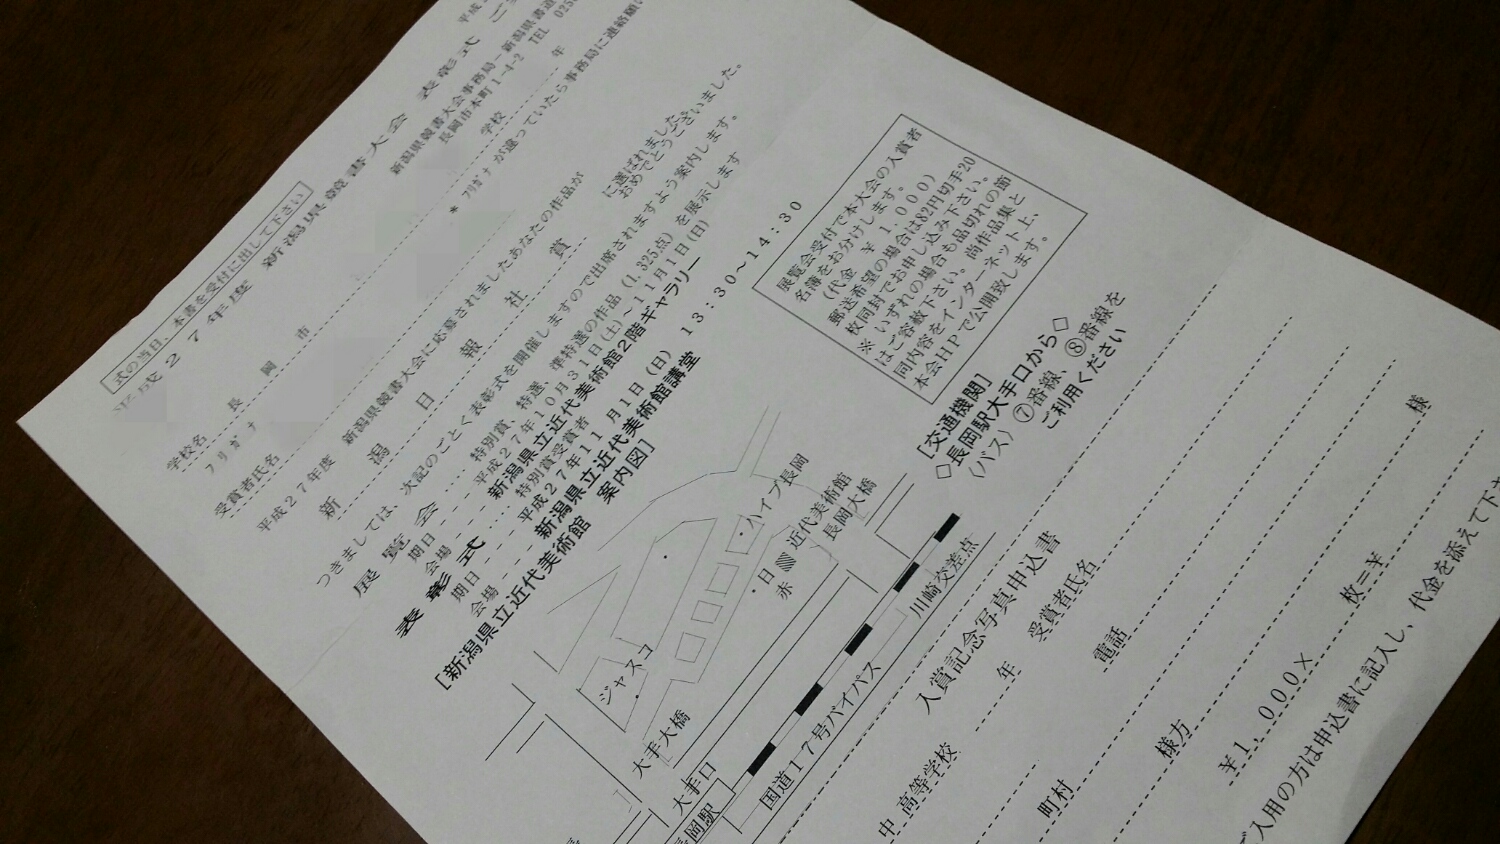 式の当日、本書を受付に出して下さい
平成27年度 新潟県競書大会 表彰式
新潟県競書大会事務局－新潟県書道
長岡市本町1-4-2 TEL 025
長岡市 学校 年
学校名
フリガナ
＊フリガナが違っていたら事務局に連絡願い
受賞者氏名
平成27年度 新潟県競書大会に応募されましたあなたの作品が
新潟日報社賞
に選ばれました。
おめでとうございました。
つきましては、次記のごとく表彰式を開催しますので出席されますよう案内します。
展覧会 … 特別賞、特選、準特選の作品（1,325点）を展示します
期日－－平成27年10月31日(土)～11月1日(日)
会場－－新潟県立近代美術館2階ギャラリー
表彰式 … 特別賞受賞者
期日－－平成27年11月1日（日） 13:30～14:30
会場－－新潟県立近代美術館講堂
[新潟県立近代美術館 案内図]
展覧会受付で本大会の入賞者
名簿をお分けします。
（代金 ￥1,000）
郵送希望の場合は82円切手20
枚同封でお申し込み下さい。
※ いずれの場合も品切れの節
はご容赦下さい。尚作品集と
同内容をインターネット上、
本会HPで公開致します。
[交通機関]
◇長岡駅大手口から◇
（バス）⑦番線、⑧番線を
ご利用ください
ハイブ長岡
近代美術館
長岡大橋
日赤
ジャスコ
大手大橋
大手口
岡駅
川崎交差点
国道17号バイパス
入賞記念写真申込書
中 高等学校 年 受賞者氏名
町村 電話
様方 様
￥1,000× 枚=￥
入用の方は申込書に記入し、代金を添えて下さ